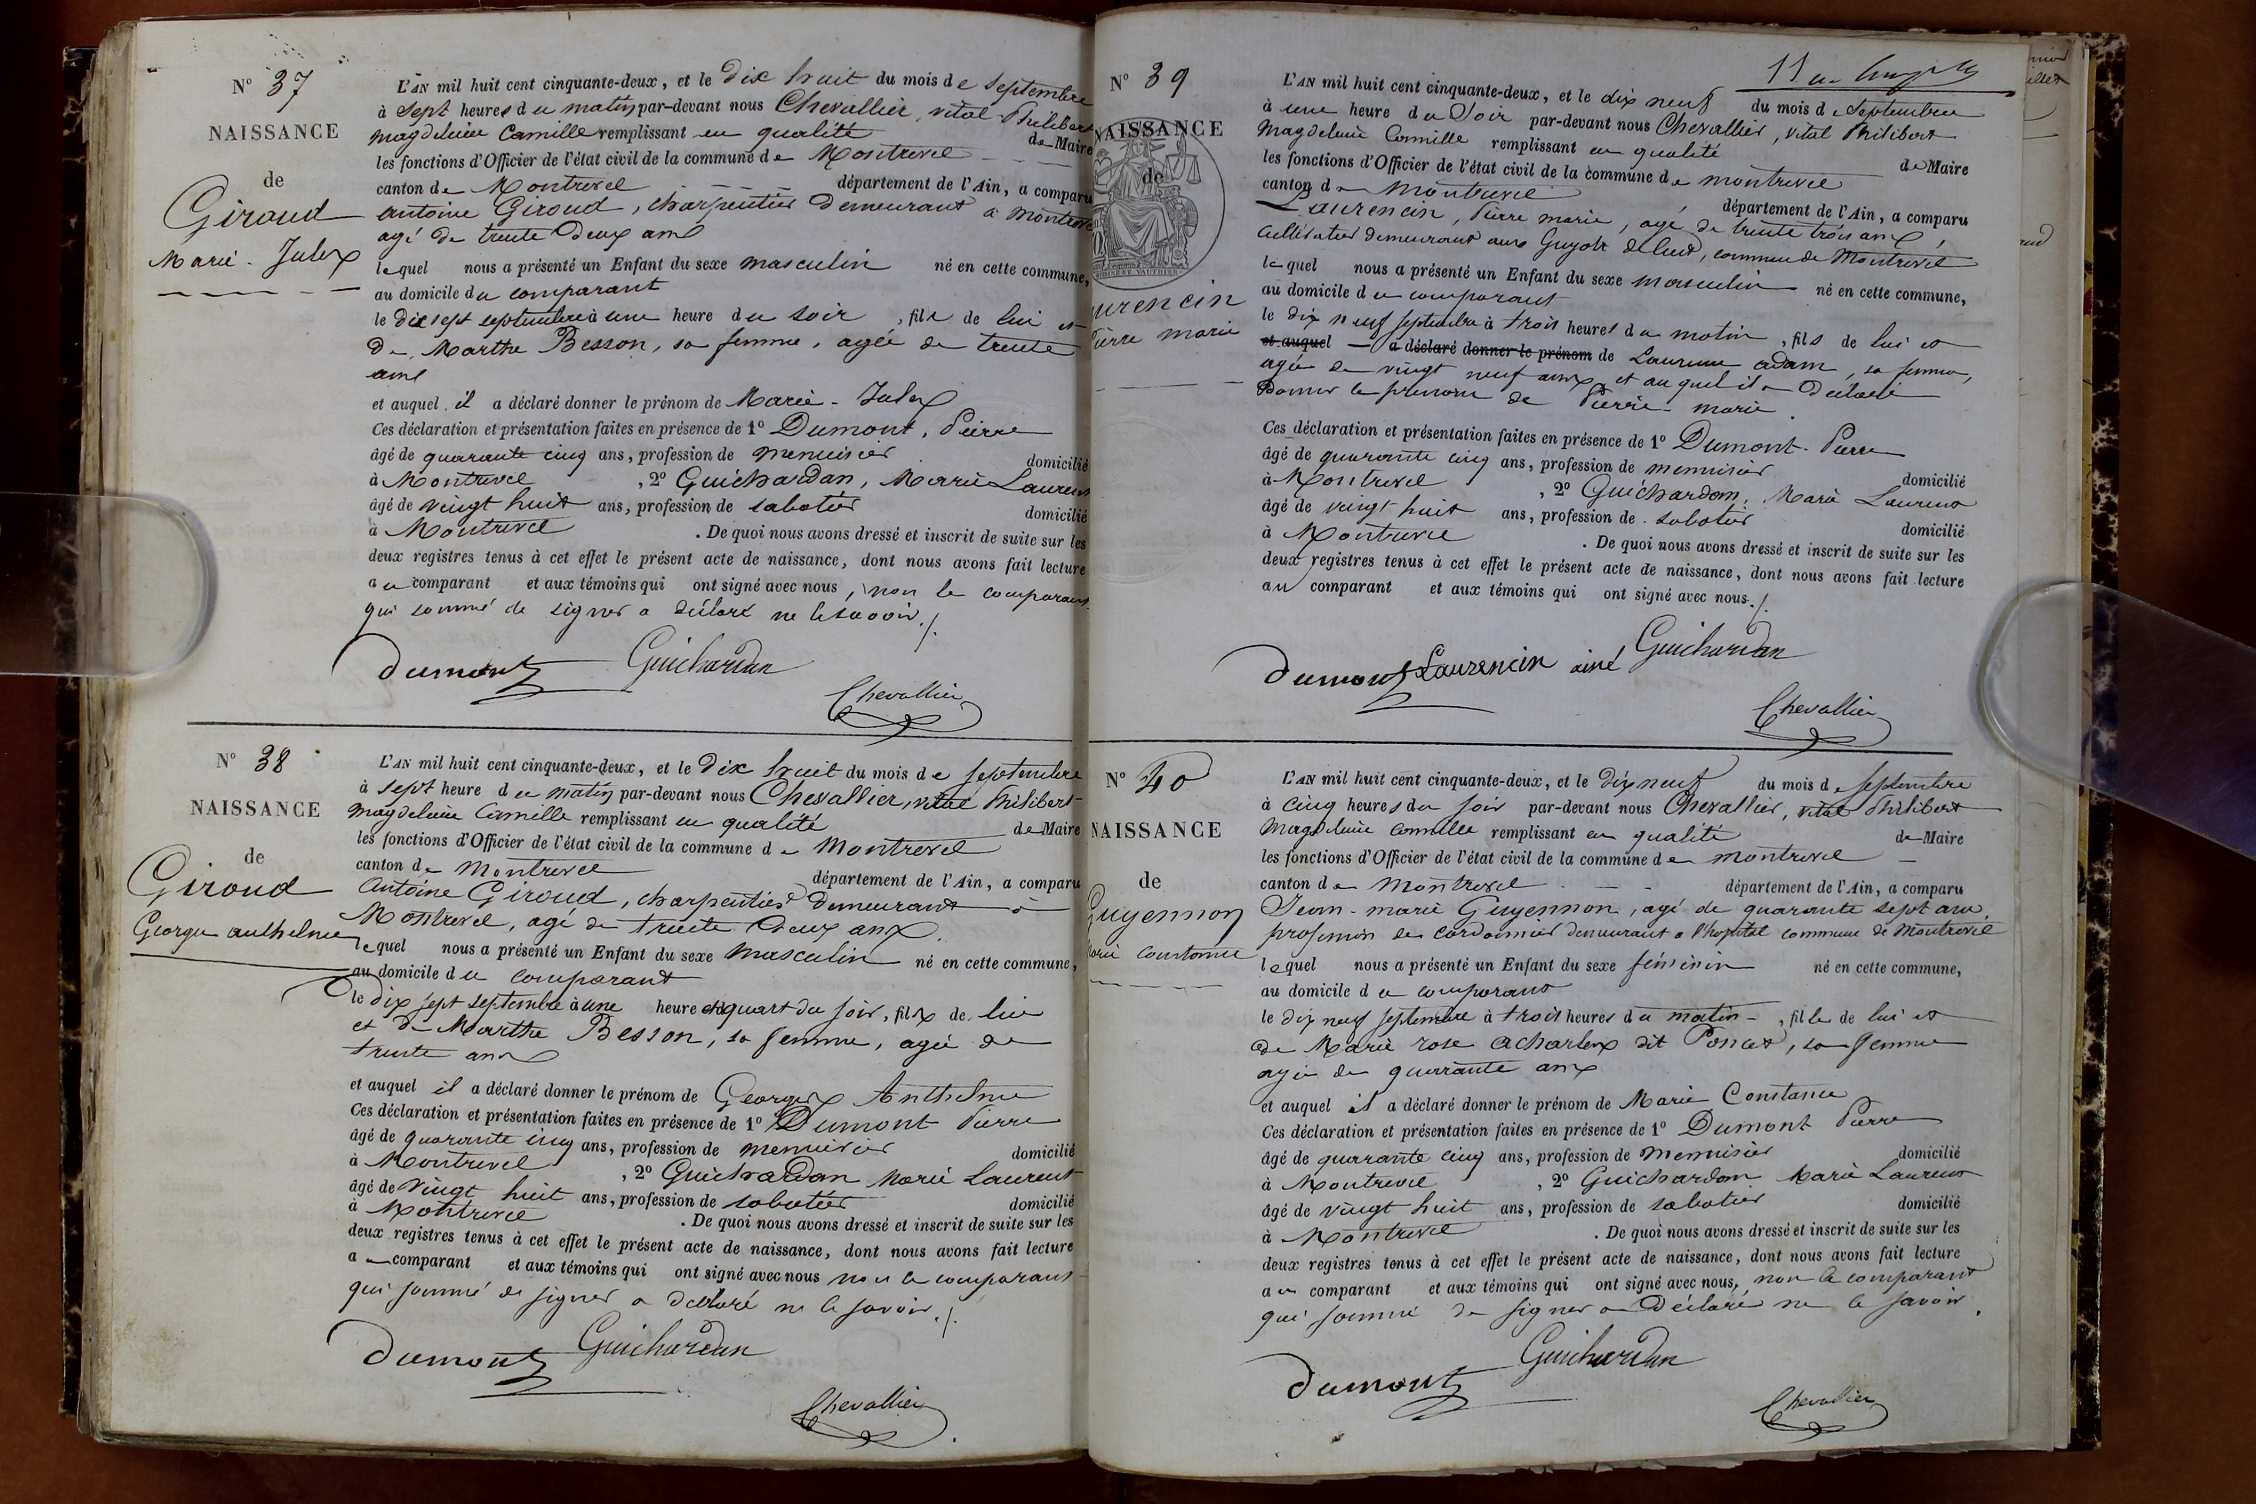 N° 37
NAISSANCE
de
Giroud
Marie - Jules
L'AN mil huit cent cinquante-deux, et le dix huit du mois de septembre
à sept heures du matin par-devant nous Chevallier, vital Philibert
magdeleine Camille remplissant en qualité de Maire
les fonctions d'Officier de l'état civil de la commune de Montrevel
canton de Montrevel département de l'Ain, a comparu
antoine Giroud, charpentier demeurant à Montrevel
agé de trente deux ans
lequel nous a présenté un Enfant du sexe masculin né en cette commune,
au domicile du comparant
le dix sept septembre à une heure du soir, fils de lui et
de Marthe Besson, sa femme, agée de trente
ans
et auquel il a déclaré donner le prénom de Marie - Jules
Ces déclaration et présentation faites en présence de 1° Dumont, Pierre
âgé de quarante cinq ans, profession de menuisier domicilié
à Montrevel, 2° Guichardan, Marie Laurent
âgé de vingt huit ans, profession de sabotier domicilié
à Montrevel. De quoi nous avons dressé et inscrit de suite sur les
deux registres tenus à cet effet le présent acte de naissance, dont nous avons fait lecture
au comparant et aux témoins qui ont signé avec nous, non le comparant
qui sommé de signer a déclaré ne le savoir ./.
Dumont Guichardan
Chevallier
N° 38
NAISSANCE
de
Giroud
George anthelme
L'AN mil huit cent cinquante-deux, et le dix huit du mois de septembre
à sept heure du matin par-devant nous Chevallier, vital Philibert
magdeleine Camille remplissant en qualité de Maire
les fonctions d'Officier de l'état civil de la commune de Montrevel
canton de Montrevel département de l'Ain, a comparu
Antoine Giroud, charpentier demeurant à
Montrevel, agé de trente deux ans.
lequel nous a présenté un Enfant du sexe masculin né en cette commune,
au domicile du comparant
le dix sept septembre à une heure et quart du soir, fils de lui
et de Marthe Besson, sa femme, agée de
trente ans
et auquel il a déclaré donner le prénom de Georges Anthelme
Ces déclaration et présentation faites en présence de 1° Dumont Pierre
âgé de quarante cinq ans, profession de menuisier domicilié
à Montrevel, 2° Guichardan Marie Laurent
âgé de vingt huit ans, profession de sabotier domicilié
à Montrevel. De quoi nous avons dressé et inscrit de suite sur les
deux registres tenus à cet effet le présent acte de naissance, dont nous avons fait lecture
au comparant et aux témoins qui ont signé avec nous non le comparant
qui sommé de signer a déclaré ne le savoir ./.
Dumont Guichardan
Chevallier
N° 39
NAISSANCE
de
urencin
ierre marie
L'AN mil huit cent cinquante-deux, et le dix neuf du mois de septembre
à une heure du soir par-devant nous Chevallier, vital Philibert
Magdeleine Camille remplissant en qualité de Maire
les fonctions d'Officier de l'état civil de la commune de montrevel
canton de montrevel département de l'Ain, a comparu
Laurencin, Pierre marie, agé de trente trois ans,
cultivateur demeurant aux Guyots commune de Montrevel
lequel nous a présenté un Enfant du sexe masculin né en cette commune,
au domicile du comparant
le dix neuf septembre à trois heures du matin, fils de lui et
et auquel a déclaré donner le prénom de Laurence adam, sa femme,
agée de vingt neuf ans, et au quel il a déclaré
donner le prénom de Pierre - marie.
Ces déclaration et présentation faites en présence de 1° Dumont - Pierre
âgé de quarante cinq ans, profession de menuisier domicilié
à Montrevel, 2° Guichardan, Marie Laurent
âgé de vingt huit ans, profession de sabotier domicilié
à Montrevel. De quoi nous avons dressé et inscrit de suite sur les
deux registres tenus à cet effet le présent acte de naissance, dont nous avons fait lecture
au comparant et aux témoins qui ont signé avec nous ./.
Dumont Laurencin ainé Guichardan
Chevallier
N° 40
NAISSANCE
de
Guyennon
arie Constance
L'AN mil huit cent cinquante-deux, et le dix neuf du mois de septembre
à cinq heures du soir par-devant nous Chevallier, vital Philibert
Magdeleine Camille remplissant en qualité de Maire
les fonctions d'Officier de l'état civil de la commune de montrevel
canton de Montrevel département de l'Ain, a comparu
Jean-marie Guyennon, agé de quarante sept ans,
profession de cordonnier demeurant a l'hopital commune de Montrevel
lequel nous a présenté un Enfant du sexe féminin né en cette commune,
au domicile du comparant
le dix neuf septembre à trois heures du matin, fille de lui et
de Marie rose acharles dit Poncet, sa femme
agée de quarante ans
et auquel il a déclaré donner le prénom de Marie Constance
Ces déclaration et présentation faites en présence de 1° Dumont Pierre
âgé de quarante cinq ans, profession de menuisier domicilié
à Montrevel, 2° Guichardan Marie Laurent
âgé de vingt huit ans, profession de sabotier domicilié
à Montrevel. De quoi nous avons dressé et inscrit de suite sur les
deux registres tenus à cet effet le présent acte de naissance, dont nous avons fait lecture
au comparant et aux témoins qui ont signé avec nous, non le comparant
qui sommé de signer a déclaré ne le savoir.
Dumont Guichardan
Chevallier